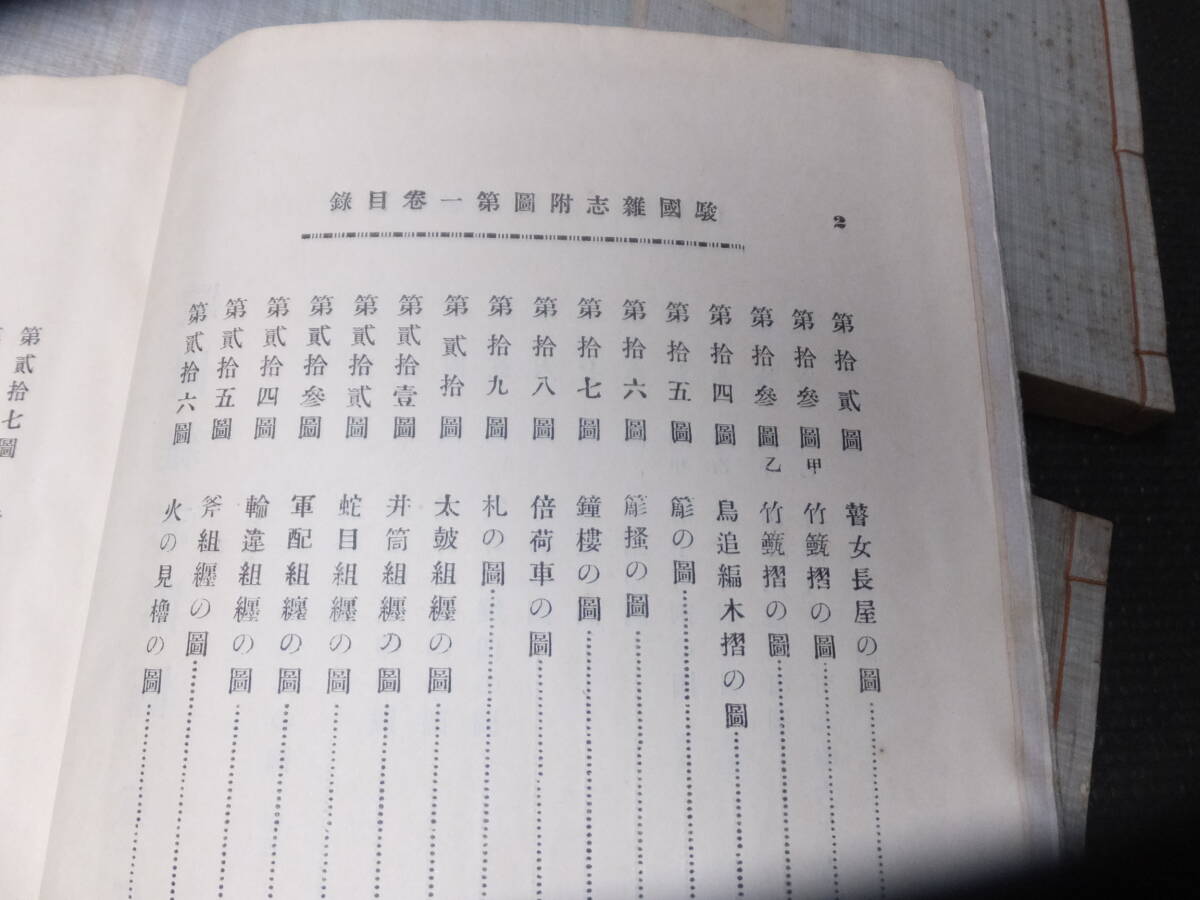 駿國雜志附圖第一卷目錄
2
第拾貳圖 瞽女長屋の圖
第拾參圖甲 竹摺の圖
第拾參圖乙 竹摺の圖
第拾四圖 鳥追編木摺の圖
第拾五圖 簓の圖
第拾六圖 簓搔の圖
第拾七圖 鐘樓の圖
第拾八圖 倍荷車の圖
第拾九圖 札の圖
第貳拾圖 太皷組纒の圖
第貳拾壹圖 井筒組纒の圖
第貳拾貳圖 蛇目組纒の圖
第貳拾參圖 軍配組纒の圖
第貳拾四圖 輪違組纒の圖
第貳拾五圖 斧組纒の圖
第貳拾六圖 火の見櫓の圖
第貳拾七圖